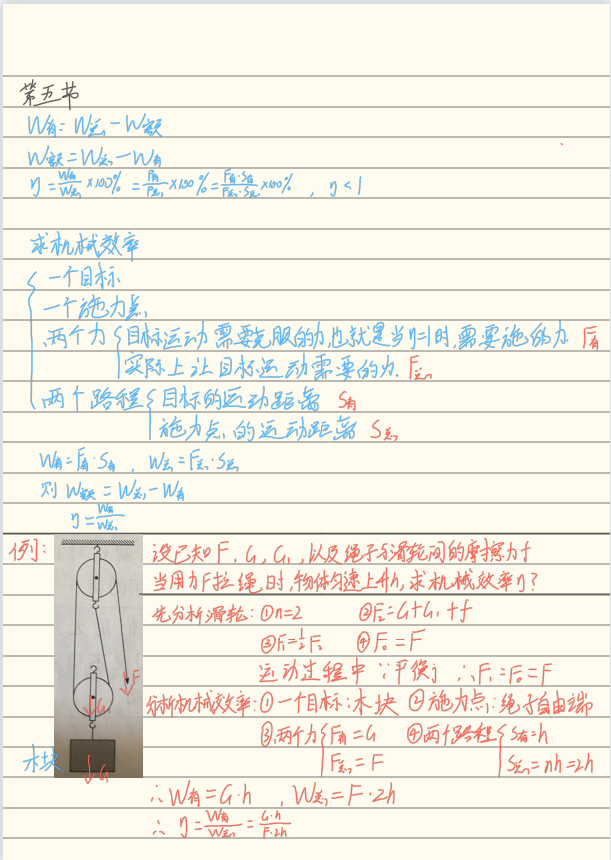 第五节
W有=W总-W额
W额=W总-W有
η=W有/W总×100%=P有/P总×100%=F有·S有/F总·S总×100%，η<1
求机械效率
一个目标
一个施力点
两个力{目标运动需要克服的力,也就是当η=1时,需要施的力 F有
实际上让目标运动需要的力. F总
两个路程{目标的运动距离 S有
施力点的运动距离 S总
W有=F有·S有，W总=F总·S总
则 W额=W总-W有
η=W有/W总
例:
设已知F,G,G₁,以及绳子与滑轮间的摩擦力f
当用力F拉绳时,物体匀速上升h,求机械效率η?
先分析滑轮:①n=2 ②F₂=G+G₁+f
③F₁=½F₂ ④F₀=F
运动过程中∵平衡 ∴F₁=F₀=F
分析机械效率:①一个目标:木块 ②施力点:绳子自由端
③两个力{F有=G ④两个路程{S有=h
F总=F S总=nh=2h
F
G₁
木块
G
∴W有=G·h，W总=F·2h
∴η=W有/W总=G·h/F·2h